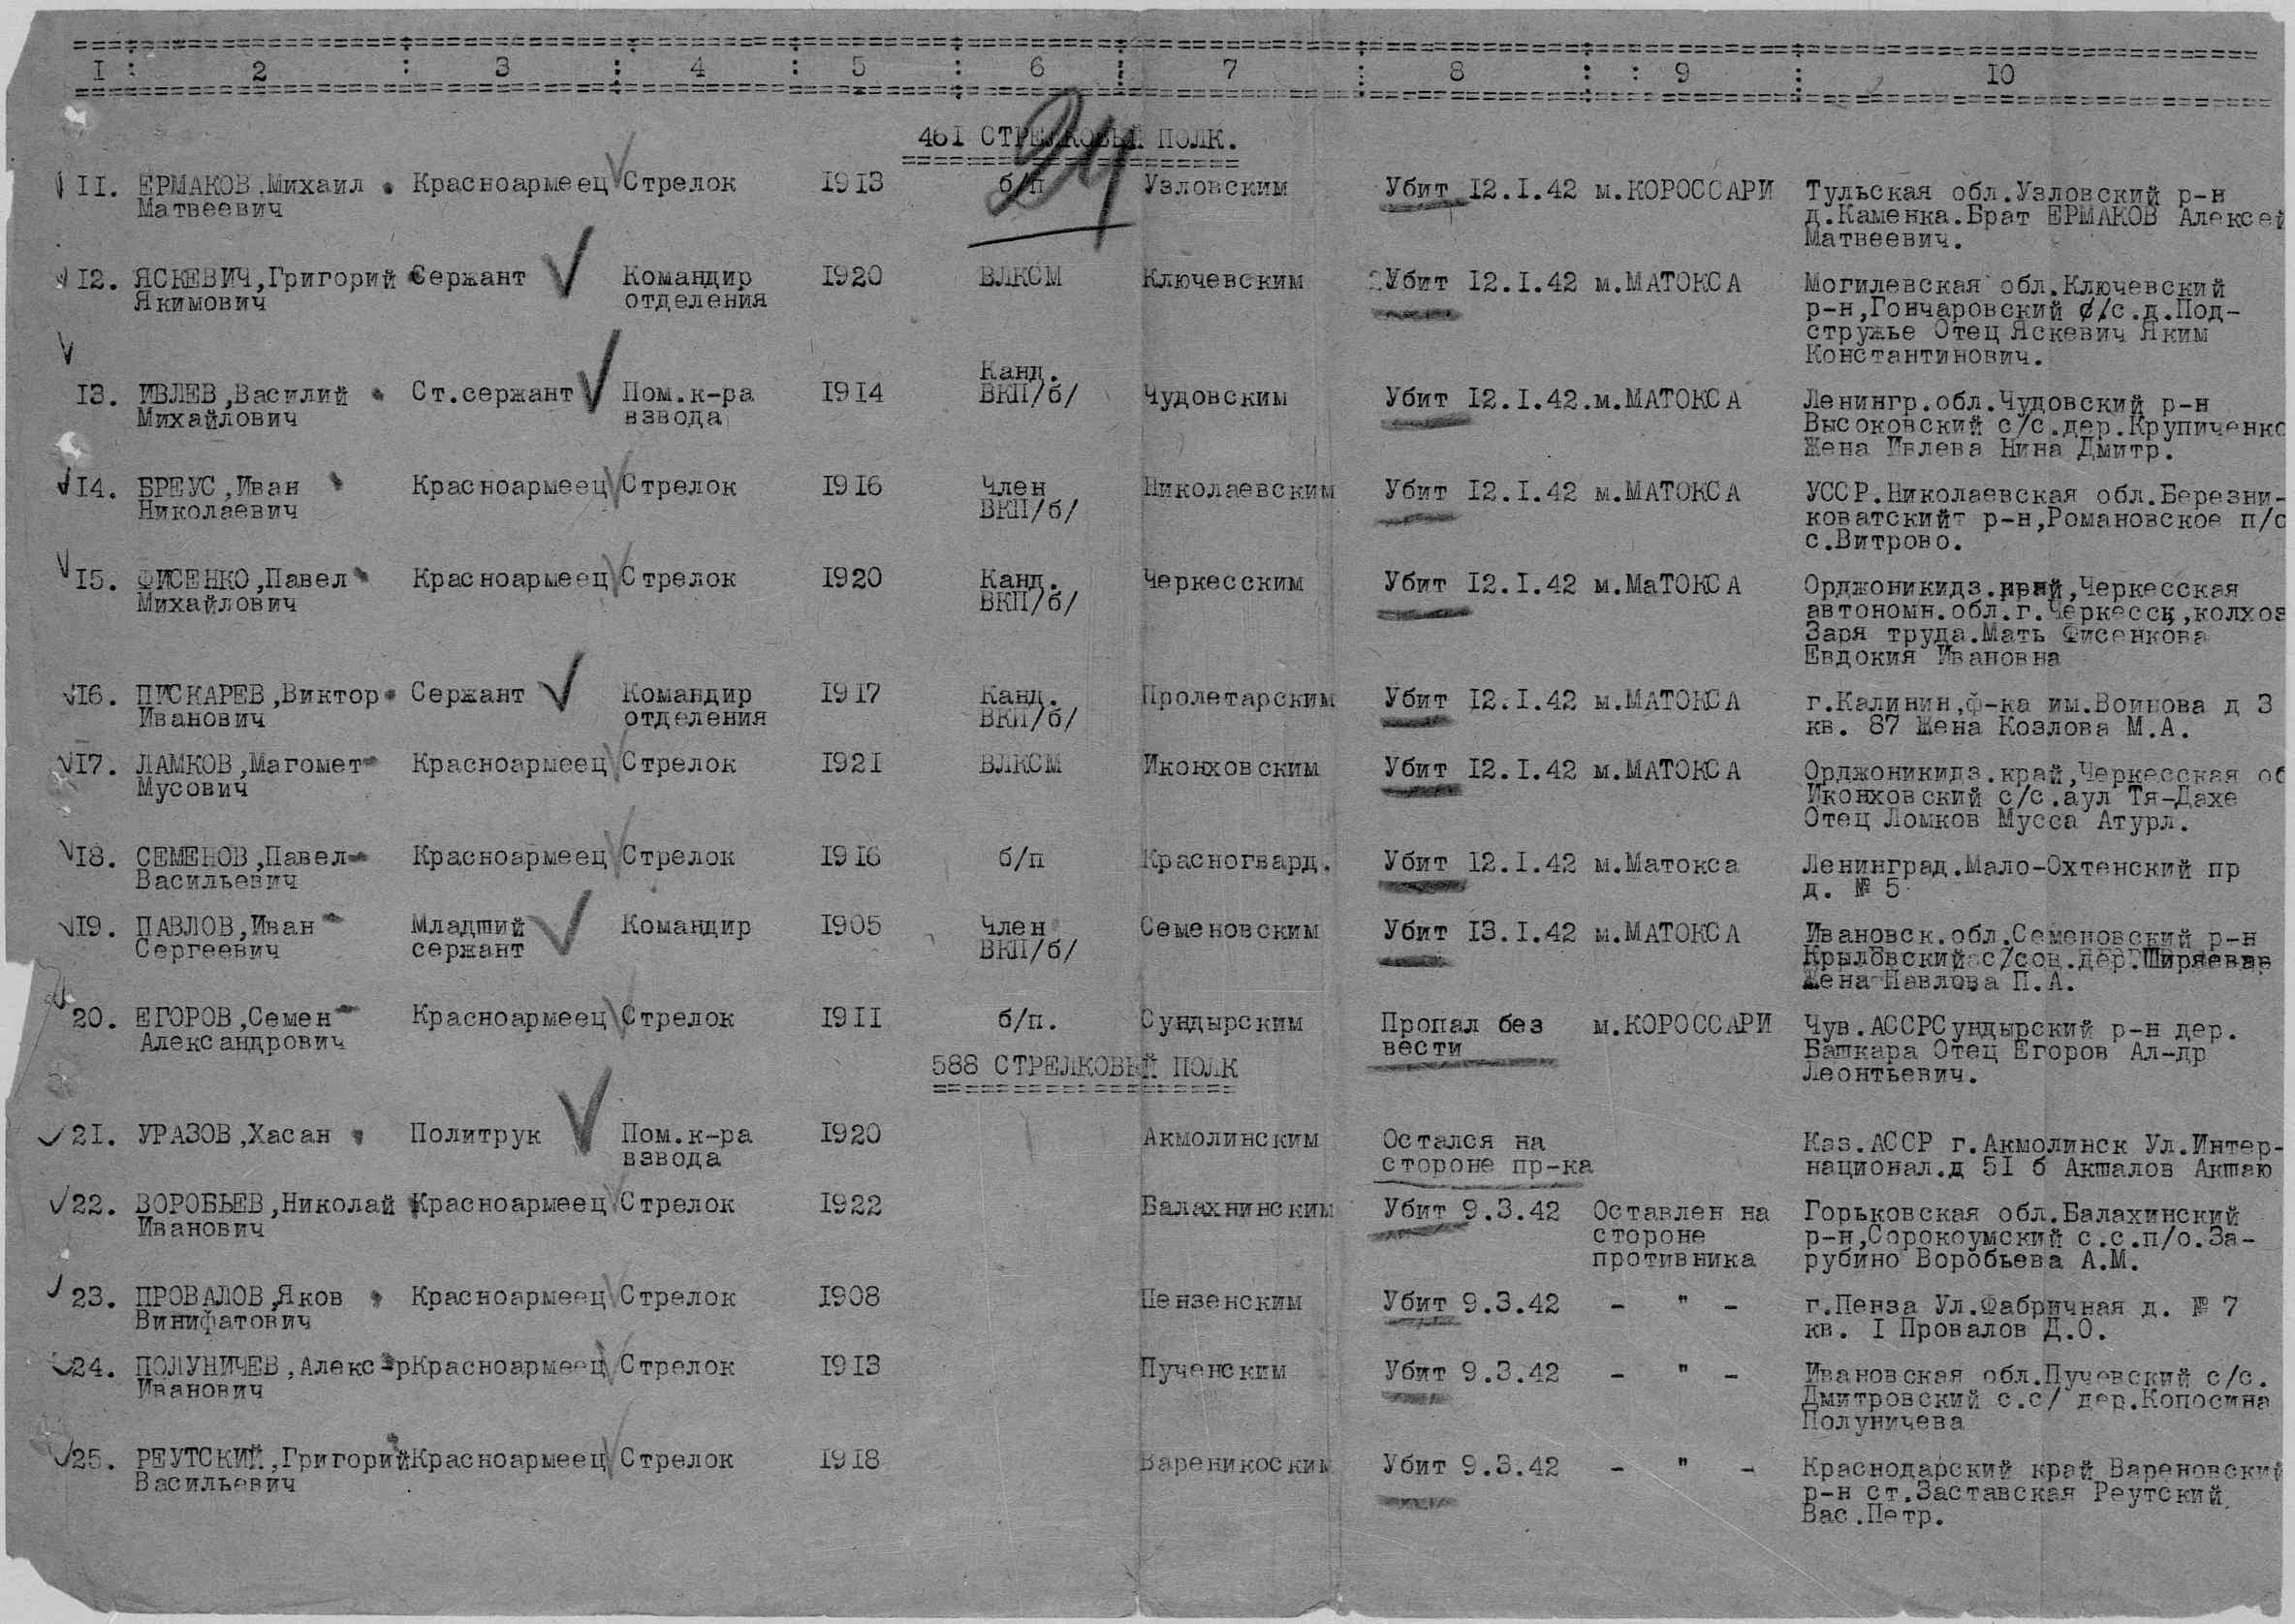 I : 2 : 3 : 4 : 5 : 6 : 7 : 8 : : 9 : 10
461 СТРЕЛКОВЫЙ ПОЛК.
24
II. ЕРМАКОВ.Михаил Красноармеец Стрелок 1913 б/п Узловским Убит 12.I.42 м.КОРОССАРИ Тульская обл.Узловский р-н
Матвеевич д.Каменка.Брат ЕРМАКОВ Алексей
Матвеевич.
I2. ЯСКЕВИЧ,Григорий Сержант Командир 1920 ВЛКСМ Ключевским Убит 12.I.42 м.МАТОКСА Могилевская обл.Ключевский
Якимович отделения р-н,Гончаровский с/с.д.Под-
стружье Отец Яскевич Яким
Константинович.
I3. ИВЛЕВ,Василий Ст.сержант Пом.к-ра 1914 Канд. ВКП/б/ Чудовским Убит 12.I.42.м.МАТОКСА Ленингр.обл.Чудовский р-н
Михайлович взвода Высоковский с/с.дер.Крупиченко
Жена Ивлева Нина Дмитр.
I4. БРЕУС,Иван Красноармеец Стрелок 1916 Член Николаевским Убит 12.I.42 м.МАТОКСА УССР.Николаевская обл.Березни-
Николаевич ВКП/б/ коватскийт р-н,Романовское п/с
с.Витрово.
I5. ФИСЕНКО,Павел Красноармеец Стрелок 1920 Канд. Черкесским Убит 12.I.42 м.МаТОКСА Орджоникидз.край,Черкесская
Михайлович ВКП/б/ автономн.обл.г.Черкесск,колхоз
Заря труда.Мать Фисенкова
Евдокия Ивановна
I6. ПИСКАРЕВ,Виктор Сержант Командир 1917 Канд. Пролетарским Убит 12.I.42 м.МАТОКСА г.Калинин,ф-ка им.Воинова д 3
Иванович отделения ВКП/б/ кв. 87 Жена Козлова М.А.
I7. ЛАМКОВ,Магомет Красноармеец Стрелок 1921 ВЛКСМ Иконховским Убит 12.I.42 м.МАТОКСА Орджоникидз.край,Черкесская об
Мусович Иконховский с/с.аул Тя-Дахе
Отец Ломков Мусса Атурл.
I8. СЕМЕНОВ,Павел Красноармеец Стрелок 1916 б/п Красногвард. Убит 12.I.42 м.Матокса Ленинград.Мало-Охтенский пр
Васильевич д. № 5
I9. ПАВЛОВ,Иван Младший Командир 1905 Член Семеновским Убит 13.I.42 м.МАТОКСА Ивановск.обл.Семеновский р-н
Сергеевич сержант ВКП/б/ Крыловский с/сов.дер.Ширяев
Жена Павлова П.А.
20. ЕГОРОВ,Семен Красноармеец Стрелок 1911 б/п. Сундырским Пропал без м.КОРОССАРИ Чув.АССРСундырский р-н дер.
Александрович вести Башкара Отец Егоров Ал-др
Леонтьевич.
588 СТРЕЛКОВЫЙ ПОЛК
21. УРАЗОВ,Хасан Политрук Пом.к-ра 1920 Акмолинским Остался на Каз.АССР г.Акмолинск Ул.Интер-
взвода стороне пр-ка национал.д 51 б Акшалов Акшаю
22. ВОРОБЬЕВ,Николай Красноармеец Стрелок 1922 Балахнинским Убит 9.3.42 Оставлен на Горьковская обл.Балахинский
Иванович стороне р-н,Сорокоумский с.с.п/о.За-
противника рубино Воробьева А.М.
23. ПРОВАЛОВ,Яков Красноармеец Стрелок 1908 Пензенским Убит 9.3.42 - " - г.Пенза Ул.Фабричная д. № 7
Винифатович кв. I Провалов Д.О.
24. ПОЛУНИЧЕВ,Алекс-р Красноармеец Стрелок 1913 Пученским Убит 9.3.42 - " - Ивановская обл.Пучевский с/с.
Иванович Дмитровский с.с/ дер.Копосина
Полуничева
25. РЕУТСКИЙ,Григорий Красноармеец Стрелок 1918 Вареникоским Убит 9.3.42 - " - Краснодарский край Вареновский
Васильевич р-н ст.Заставская Реутский
Вас.Петр.